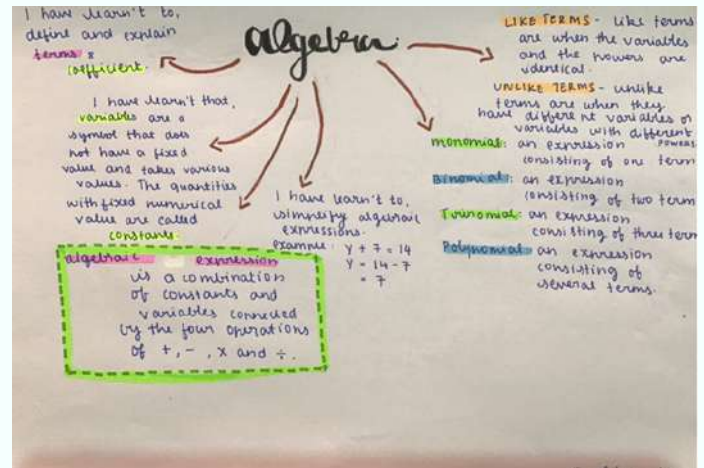 algebra
I have learn't to,
define and explain
terms &
coefficient.
I have learn't that,
variables are a
symbol that does
not have a fixed
value and takes various
values. The quantities
with fixed numerical
value are called
constants.
algebraic expression
is a combination
of constants and
variables connected
by the four operations
of +, -, x and ÷.
I have learn't to,
simplify algebraic
expressions.
example: y + 7 = 14
y = 14 - 7
= 7
LIKE TERMS - like terms
are when the variables
and the powers are
identical.
UNLIKE TERMS - unlike
terms are when they
have different variables or
variables with different
powers
monomial: an expression
consisting of one term
Binomial: an expression
consisting of two term
Trinomial: an expression
consisting of three term
Polynomial: an expression
consisting of
several terms.